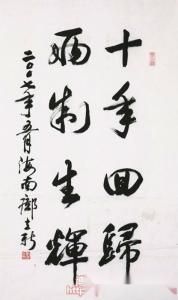 十年回歸
兩制生輝
二〇〇七年五月海南
http